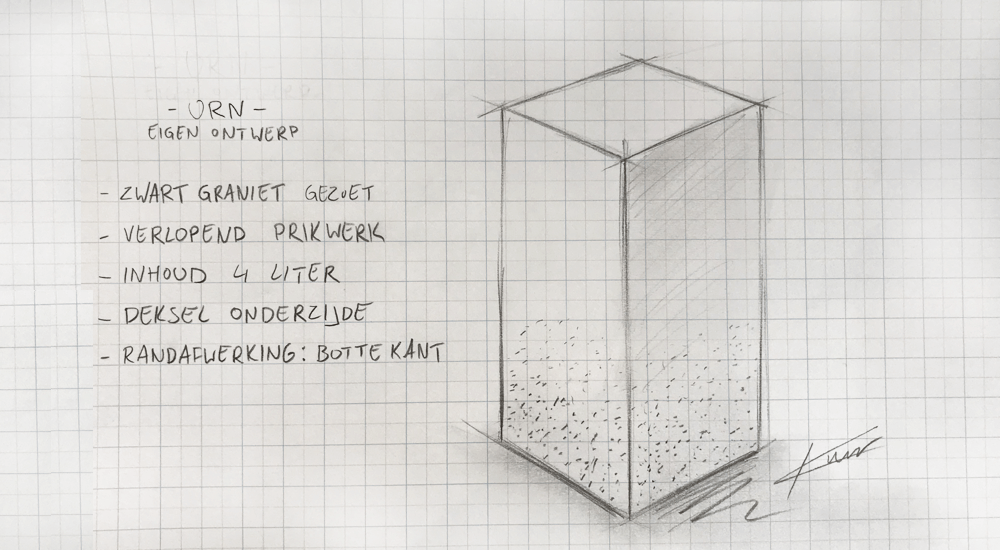 - URN -
EIGEN ONTWERP
- ZWART GRANIET GEZOET
- VERLOPEND PRIKWERK
- INHOUD 4 LITER
- DEKSEL ONDERZIJDE
- RANDAFWERKING: BOTTE KANT